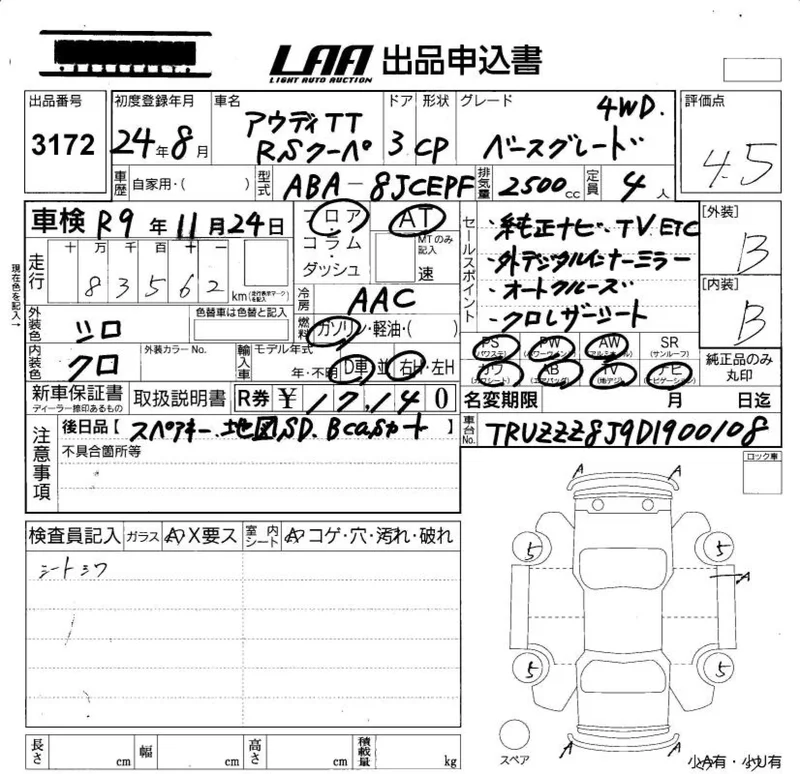 LAA 出品申込書
LIGHT AUTO AUCTION
出品番号 3172
初度登録年月 24年8月
車名 アウディTT RSクーペ
ドア 3
形状 CP
グレード 4WD. ベースグレード
評価点 4.5
車歴 自家用・( )
型式 ABA-8JCEPF
排気量 2500cc
定員 4人
車検 R9年11月24日
フロア・コラム・ダッシュ
AT
MTのみ記入
速
セールスポイント
・純正ナビ・TV ETC
・外デジタルインナーミラー
・オートクルーズ
・クロレザーシート
[外装] B
[内装] B
純正品のみ丸印
現在色を記入→
走行 十万千百十一
83562
km(走行表示マークを記入)
冷房 AAC
外装色 シロ
色替車は色替と記入
燃料 ガソリン・軽油・( )
内装色 クロ
外装カラーNo.
輸入車 モデル年式 年・不明 D車 並 右H・左H
PS (パワステ) PW (パワーウインド) AW (アルミホイール) SR (サンルーフ)
カワ (カワシート) AB (エアバッグ) TV (地デジ) ナビ (ナビゲーション)
新車保証書 ディーラー捺印あるもの
取扱説明書
R券 ¥17,140
名変期限 月 日迄
注意事項
後日品【スペアキー.地図SD.Bcasカード】
車台No. TRUZZZ8J9D1900108
不具合箇所等
ロック車
検査員記入 ガラス A X要ス 室内シート A コゲ・穴・汚れ・破れ
シートシワ
A A
5 5
A
5 5
A A
スペア
少A有・少U有
長さ cm 幅 cm 高さ cm 積載量 kg